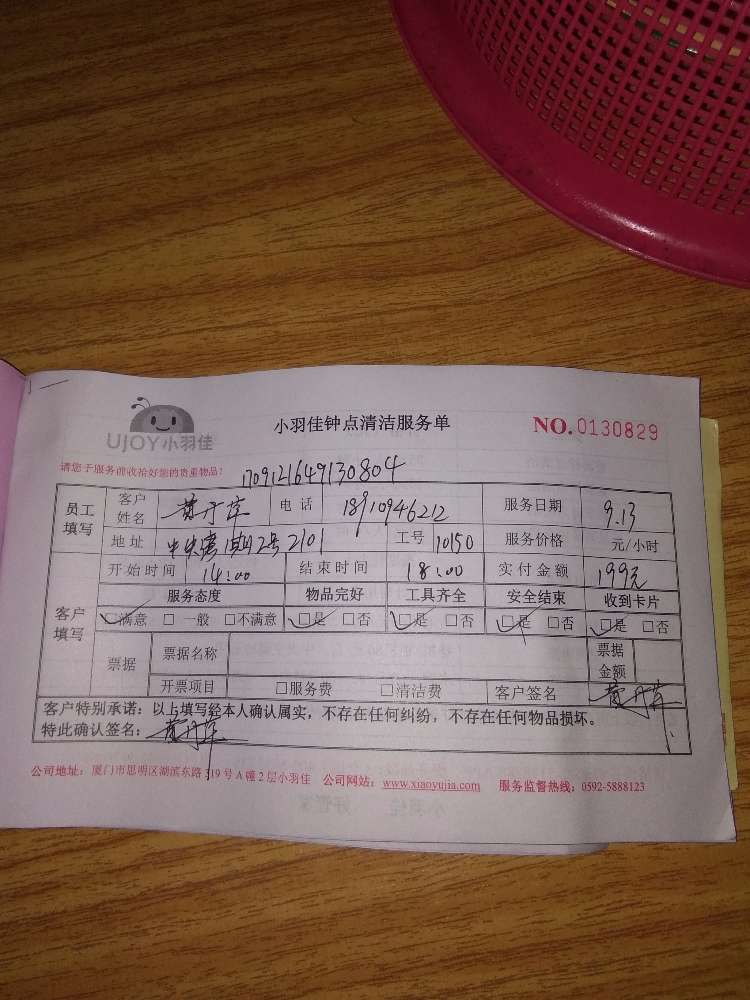 UJOY小羽佳
小羽佳钟点清洁服务单
NO.0130829
请您于服务前收拾好您的贵重物品!
1709121649130804
员工填写 客户姓名 黄丹萍 电话 18910946212 服务日期 9.13
地址 2号2101 工号 10150 服务价格 元/小时
客户填写 开始时间 14:00 结束时间 18:00 实付金额 199元
服务态度 物品完好 工具齐全 安全结束 收到卡片
☑满意 □ 一般 □不满意 ☑是 □否 ☑是 □否 ☑是 □否 ☑是 □否
票据 票据名称 票据金额
开票项目 □服务费 □清洁费 客户签名 黄丹萍
客户特别承诺:以上填写经本人确认属实,不存在任何纠纷,不存在任何物品损坏。
特此确认签名: 黄丹萍
公司地址:厦门市思明区湖滨东路319号A幢2层小羽佳 公司网站:www.xiaoyujia.com 服务监督热线:0592-5888123